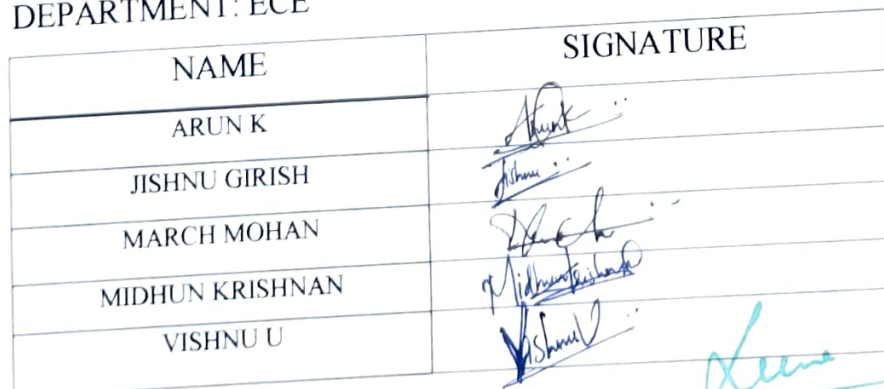 DEPARTMENT: ECE
NAME SIGNATURE
ARUN K ArunK
JISHNU GIRISH Jishnu
MARCH MOHAN
MIDHUN KRISHNAN Midhunkrishnan
VISHNU U VishnuU